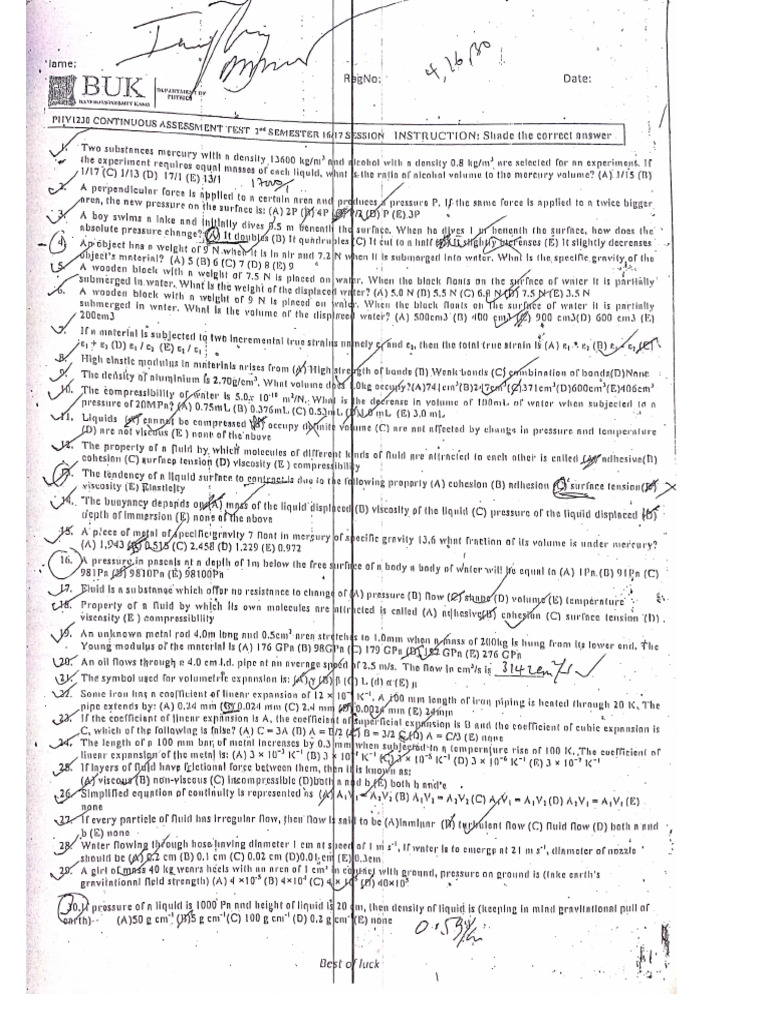 Name:
RegNo:
4, 16, 30
Date:
BUK
BAYERO UNIVERSITY KANO
DEPARTMENT OF
PHYSICS
PHY1230 CONTINUOUS ASSESSMENT TEST 2nd SEMESTER 16/17 SESSION INSTRUCTION: Shade the correct answer
1. Two substances mercury with a density 13600 kg/m³ and alcohol with a density 0.8 kg/m³ are selected for an experiment. If
the experiment requires equal masses of each liquid, what is the ratio of alcohol volume to the mercury volume? (A) 1/15 (B)
1/17 (C) 1/13 (D) 17/1 (E) 13/1
2. A perpendicular force is applied to a certain area and produces a pressure P. If the same force is applied to a twice bigger
area, the new pressure on the surface is: (A) 2P (B) 4P (C) P/2 (D) P (E) 3P
3. A boy swims a lake and initially dives 0.5 m beneath the surface. When he dives 1 m beneath the surface, how does the
absolute pressure change? (A) It doubles (B) It quadruples (C) It cut to a half (D) It slightly increases (E) It slightly decreases
4. An object has a weight of 9 N when it is in air and 7.2 N when it is submerged into water. What is the specific gravity of the
object's material? (A) 5 (B) 6 (C) 7 (D) 8 (E) 9
5. A wooden block with a weight of 7.5 N is placed on water. When the block floats on the surface of water it is partially
submerged in water. What is the weight of the displaced water? (A) 5.0 N (B) 5.5 N (C) 6.0 N (D) 7.5 N (E) 3.5 N
6. A wooden block with a weight of 9 N is placed on water. When the block floats on the surface of water it is partially
submerged in water. What is the volume of the displaced water? (A) 500cm3 (B) 400 cm3 (C) 900 cm3(D) 600 cm3 (E)
200cm3
7. If a material is subjected to two incremental true strains namely ε₁ and ε₂, then the total true strain is (A) ε₁ * ε₂ (B) ε₁ - ε₂ (C)
ε₁ + ε₂ (D) ε₁ / ε₂ (E) ε₂ / ε₁
8. High elastic modulus in materials arises from (A) High strength of bonds (B) Weak bonds (C) combination of bonds(D)None
9. The density of aluminium is 2.70g/cm³. What volume does 1.0kg occupy?(A)741cm³(B)247cm³(C)371cm³(D)600cm³(E)406cm³
10. The compressibility of water is 5.0x 10⁻¹⁰ m²/N. What is the decrease in volume of 100mL of water when subjected to a
pressure of 20MPa? (A) 0.75mL (B) 0.376mL (C) 0.53mL (D)1.0 mL (E) 3.0 mL
11. Liquids (A) cannot be compressed (B) occupy definite volume (C) are not affected by change in pressure and temperature
(D) are not viscous (E) none of the above
12. The property of a fluid by which molecules of different kinds of fluid are attracted to each other is called (A) adhesive(B)
cohesion (C) surface tension (D) viscosity (E) compressibility
13. The tendency of a liquid surface to contract is due to the following property (A) cohesion (B) adhesion (C) surface tension(D)
viscosity (E) Elasticity
14. The buoyancy depends on (A) mass of the liquid displaced (B) viscosity of the liquid (C) pressure of the liquid displaced (D)
depth of immersion (E) none of the above
15. A piece of metal of specific gravity 7 float in mercury of specific gravity 13.6 what fraction of its volume is under mercury?
(A) 1.943 (B) 0.515 (C) 2.458 (D) 1.229 (E) 0.972
16. A pressure in pascals at a depth of 1m below the free surface of a body a body of water will be equal to (A) 1Pa (B) 91Pa (C)
981Pa (D) 9810Pa (E) 98100Pa
17. Fluid is a substance which offer no resistance to change of (A) pressure (B) flow (C) shape (D) volume (E) temperature
18. Property of a fluid by which its own molecules are attracted is called (A) adhesive(B) cohesion (C) surface tension (D)
viscosity (E) compressibility
19. An unknown metal rod 4.0m long and 0.5cm² area stretches to 1.0mm when a mass of 200kg is hung from its lower end. The
Young modulus of the material is (A) 176 GPa (B) 98GPa (C) 179 GPa (D) 152 GPa (E) 276 GPa
20. An oil flows through a 4.0 cm i.d. pipe at an average speed of 2.5 m/s. The flow in cm³/s is 3142cm³/s
21. The symbol used for volumetric expansion is: (A) γ (B) β (C) L (d) α (E) μ
22. Some iron has a coefficient of linear expansion of 12 × 10⁻⁶ K⁻¹. A 100 mm length of iron piping is heated through 20 K. The
pipe extends by: (A) 0.24 mm (B) 0.024 mm (C) 2.4 mm (D) 0.0024 mm (E) 24mm
23. If the coefficient of linear expansion is A, the coefficient of superficial expansion is B and the coefficient of cubic expansion is
C, which of the following is false? (A) C = 3A (B) A = B/2 (C) B = 3/2 C (D) A = C/3 (E) none
24. The length of a 100 mm bar of metal increases by 0.3 mm when subjected to a temperature rise of 100 K. The coefficient of
linear expansion of the metal is: (A) 3 × 10⁻³ K⁻¹ (B) 3 × 10⁻⁴ K⁻¹ (C) 3 × 10⁻⁵ K⁻¹ (D) 3 × 10⁻⁶ K⁻¹ (E) 3 × 10⁻⁷ K⁻¹
25. If layers of fluid have frictional force between them, then it is known as:
(A) viscous (B) non-viscous (C) incompressible (D)both a and b (E) both b and c
26. Simplified equation of continuity is represented as (A) A₁V₁ = A₂V₂ (B) A₁V₂ = A₂V₂ (C) A₁V₁ = A₁V₂ (D) A₁V₂ = A₁V₂ (E)
none
27. If every particle of fluid has irregular flow, then flow is said to be (A)laminar (B) turbulent flow (C) fluid flow (D) both a and
b (E) none
28. Water flowing through hose having diameter 1 cm at speed of 1 m s⁻¹, If water is to emerge at 21 m s⁻¹, diameter of nozzle
should be (A) 0.2 cm (B) 0.1 cm (C) 0.02 cm (D)0.01 cm (E) 0.3cm
29. A girl of mass 40 kg wears heels with an area of 1 cm² in contact with ground, pressure on ground is (take earth's
gravitational field strength) (A) 4 ×10⁻⁵ (B) 4×10⁴ (C) 4 × 10⁵ (D) 40×10⁵
30. If pressure of a liquid is 1000 Pa and height of liquid is 20 cm, then density of liquid is (keeping in mind gravitational pull of
earth) (A)50 g cm⁻¹ (B)5 g cm⁻¹(C) 100 g cm⁻¹ (D) 0.2 g cm⁻¹(E) none
Best of luck